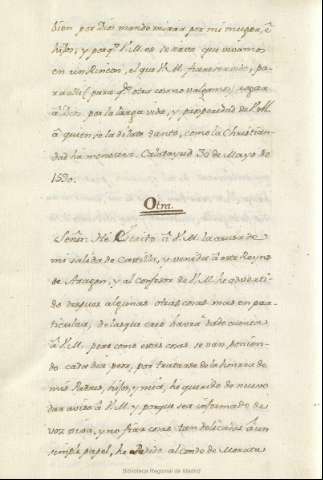 bien por Dios mande mirar por mi muger, è
hijos, y porq.e V.M. no se trate que vivamos
en un Rincon, el que V.M. fuere servido, pa-
ra alli (para q.e otra cosa no valgamos) rogar
à Dios por la larga vida, y prosperidad de V.M.
à quien se la dè tanta, como la Christian-
dad ha menester. Calatayud 30 de Mayo de
1590.
Otra.
Señor: He Escrito à V.M. la causa de
mi salida de Castilla, y venida à este Reyno
de Aragon, y al Confesor de V.M. he adverti-
do despues algunas otras cosas mas en par-
ticular, de las que creo havrà dado cuenta
à V.M. pero como estas cosas se van ponien-
do cada dia peor, por tratarse de la honra de
mis Padres, hijos, y mia, he querido de nuevo
dar aviso à V.M. y porque sea informado de
voz viva, y no fiar cosas tan delicadas à un
simple papel, he Pedido al Conde de Morata
Biblioteca Regional de Madrid